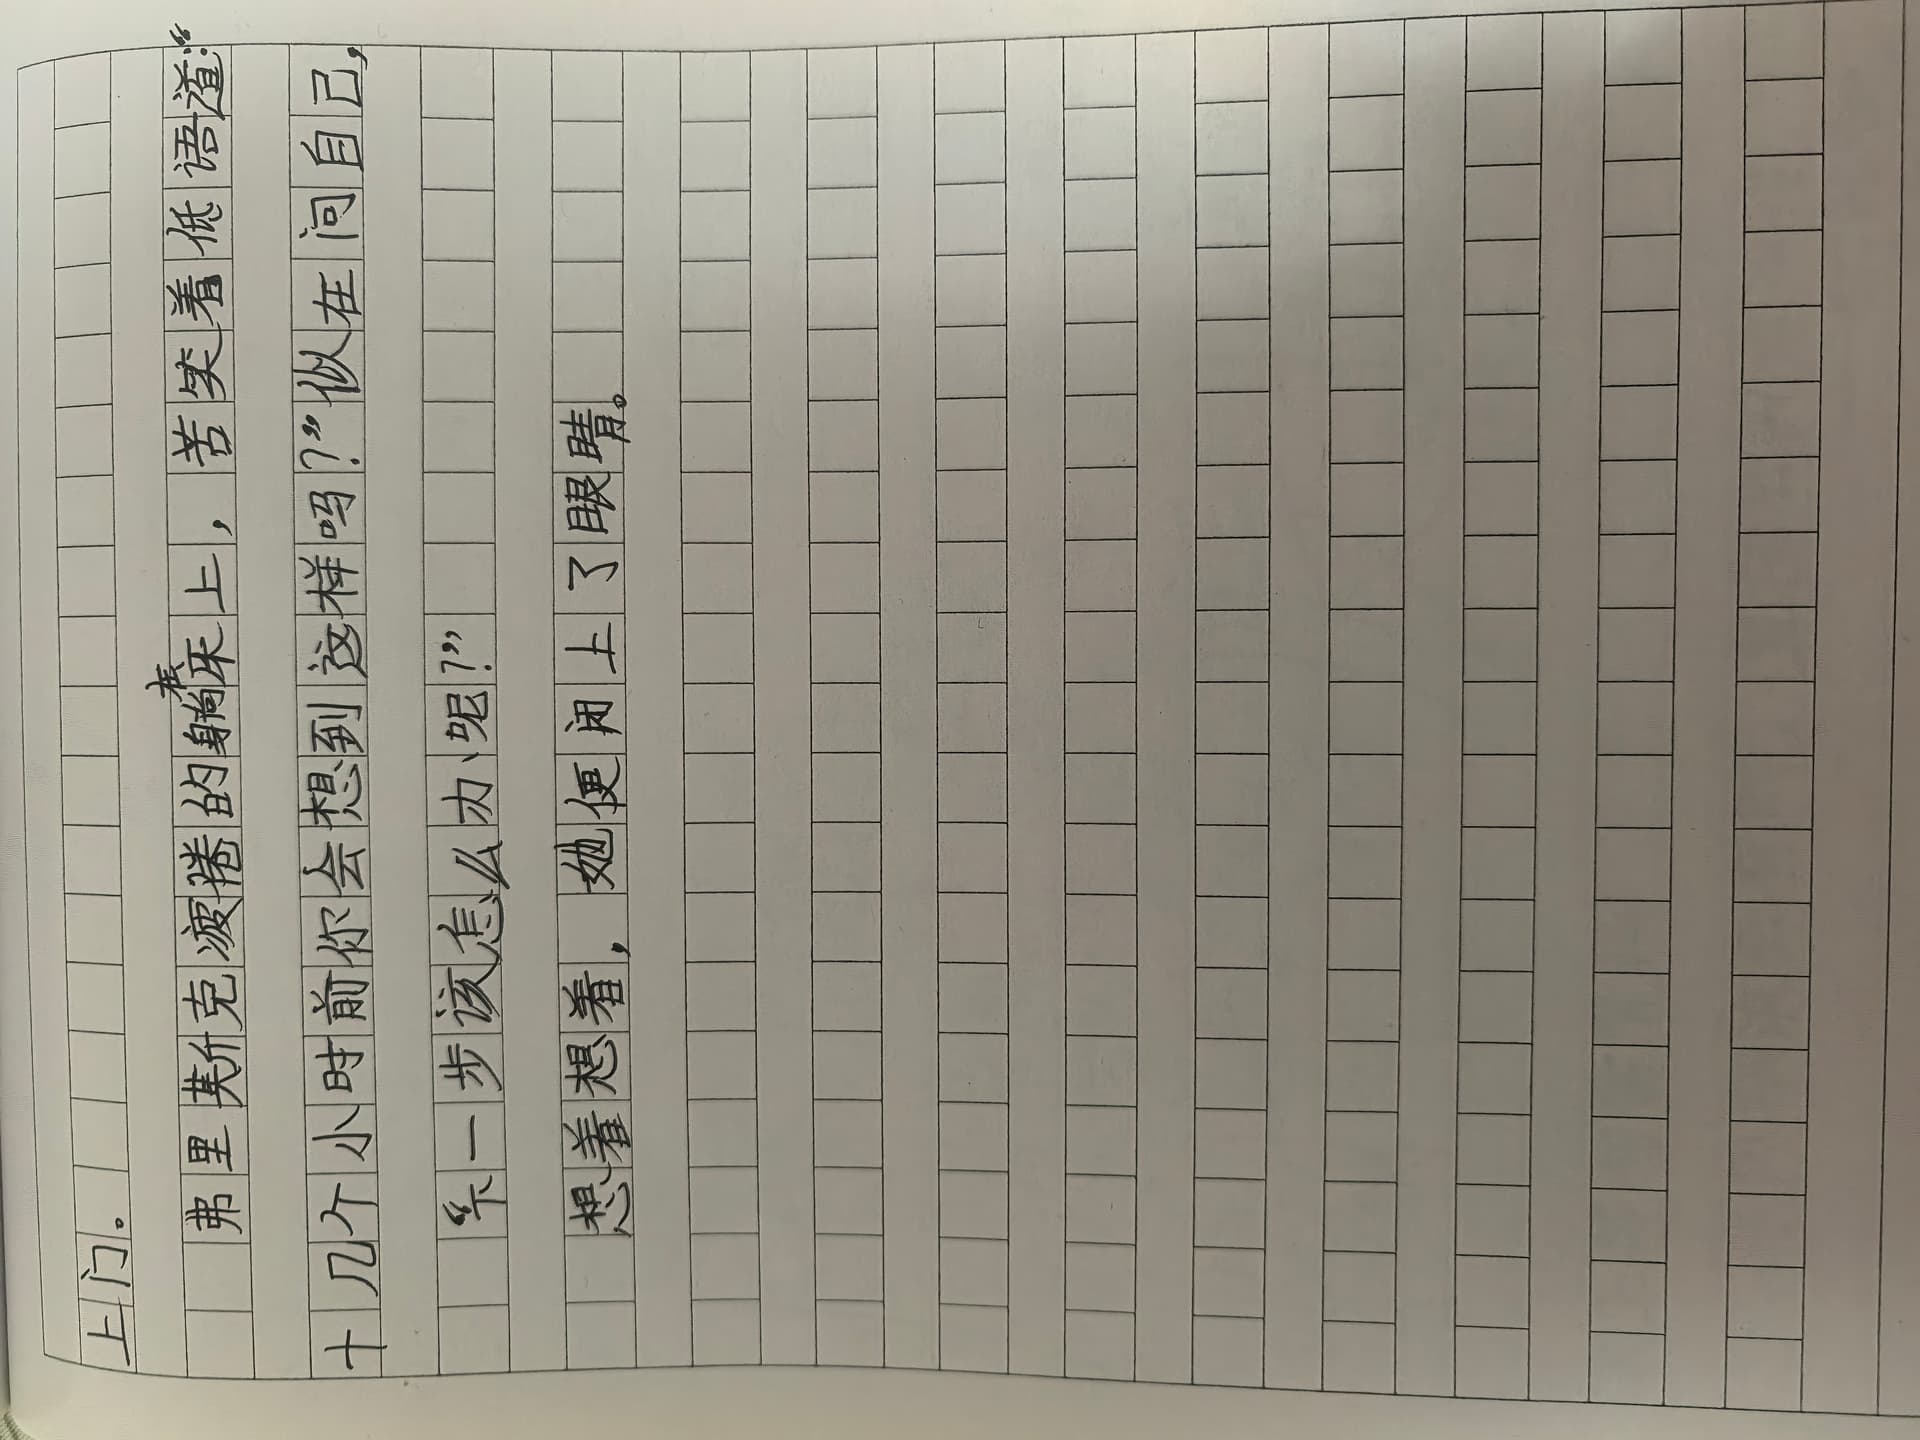 上门。
弗里斯克疲惓的躺在床上，苦笑着低语道：“
十几个小时前你会想到这样吗？”似在问自己，
“下一步该怎么办呢？”
想着想着，她便闭上了眼睛。